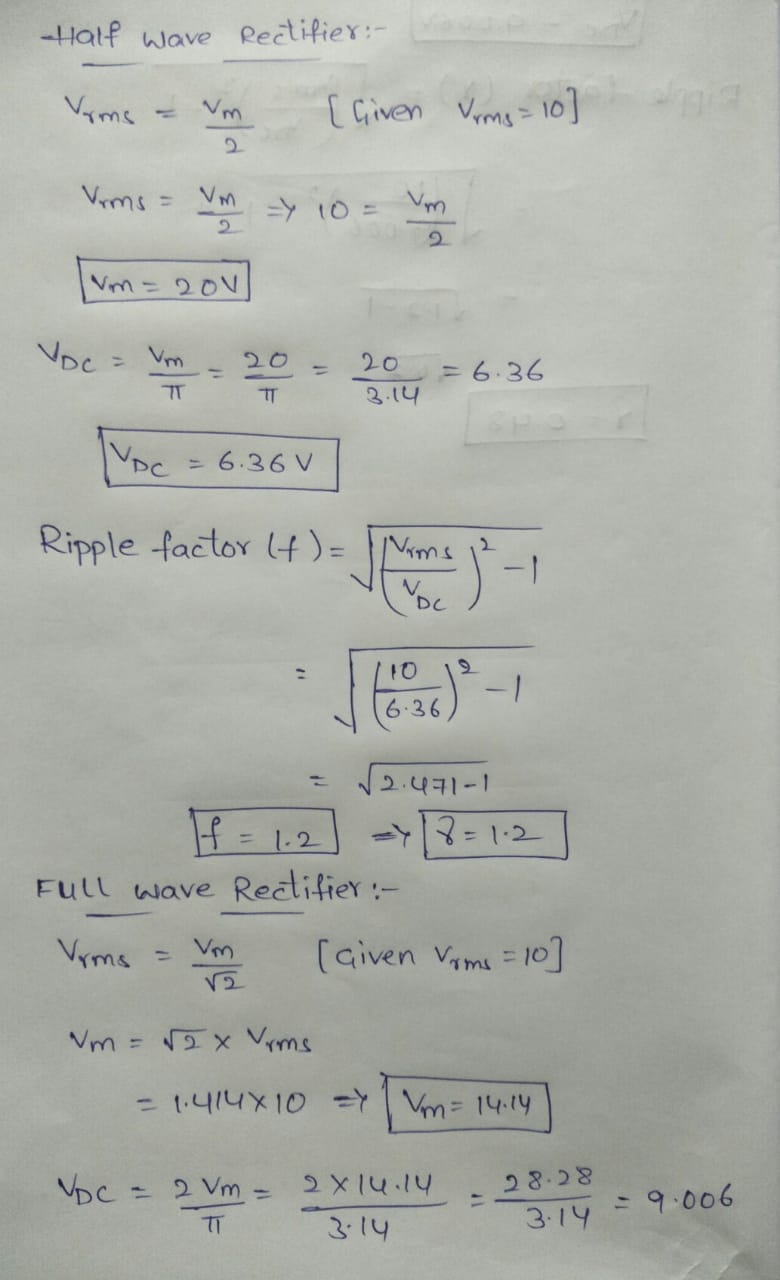 Half wave Rectifier:-
Vrms = Vm/2 [Given Vrms = 10]
Vrms = Vm/2 => 10 = Vm/2
Vm = 20V
VDC = Vm/π = 20/π = 20/3.14 = 6.36
VDC = 6.36 V
Ripple factor (f) = √((Vrms/VDC)² - 1)
= √((10/6.36)² - 1)
= √2.471-1
f = 1.2 => γ = 1.2
Full wave Rectifier :-
Vrms = Vm/√2 [Given Vrms = 10]
Vm = √2 x Vrms
= 1.414 X 10 => Vm = 14.14
VDC = 2 Vm/π = 2 X 14.14/3.14 = 28.28/3.14 = 9.006